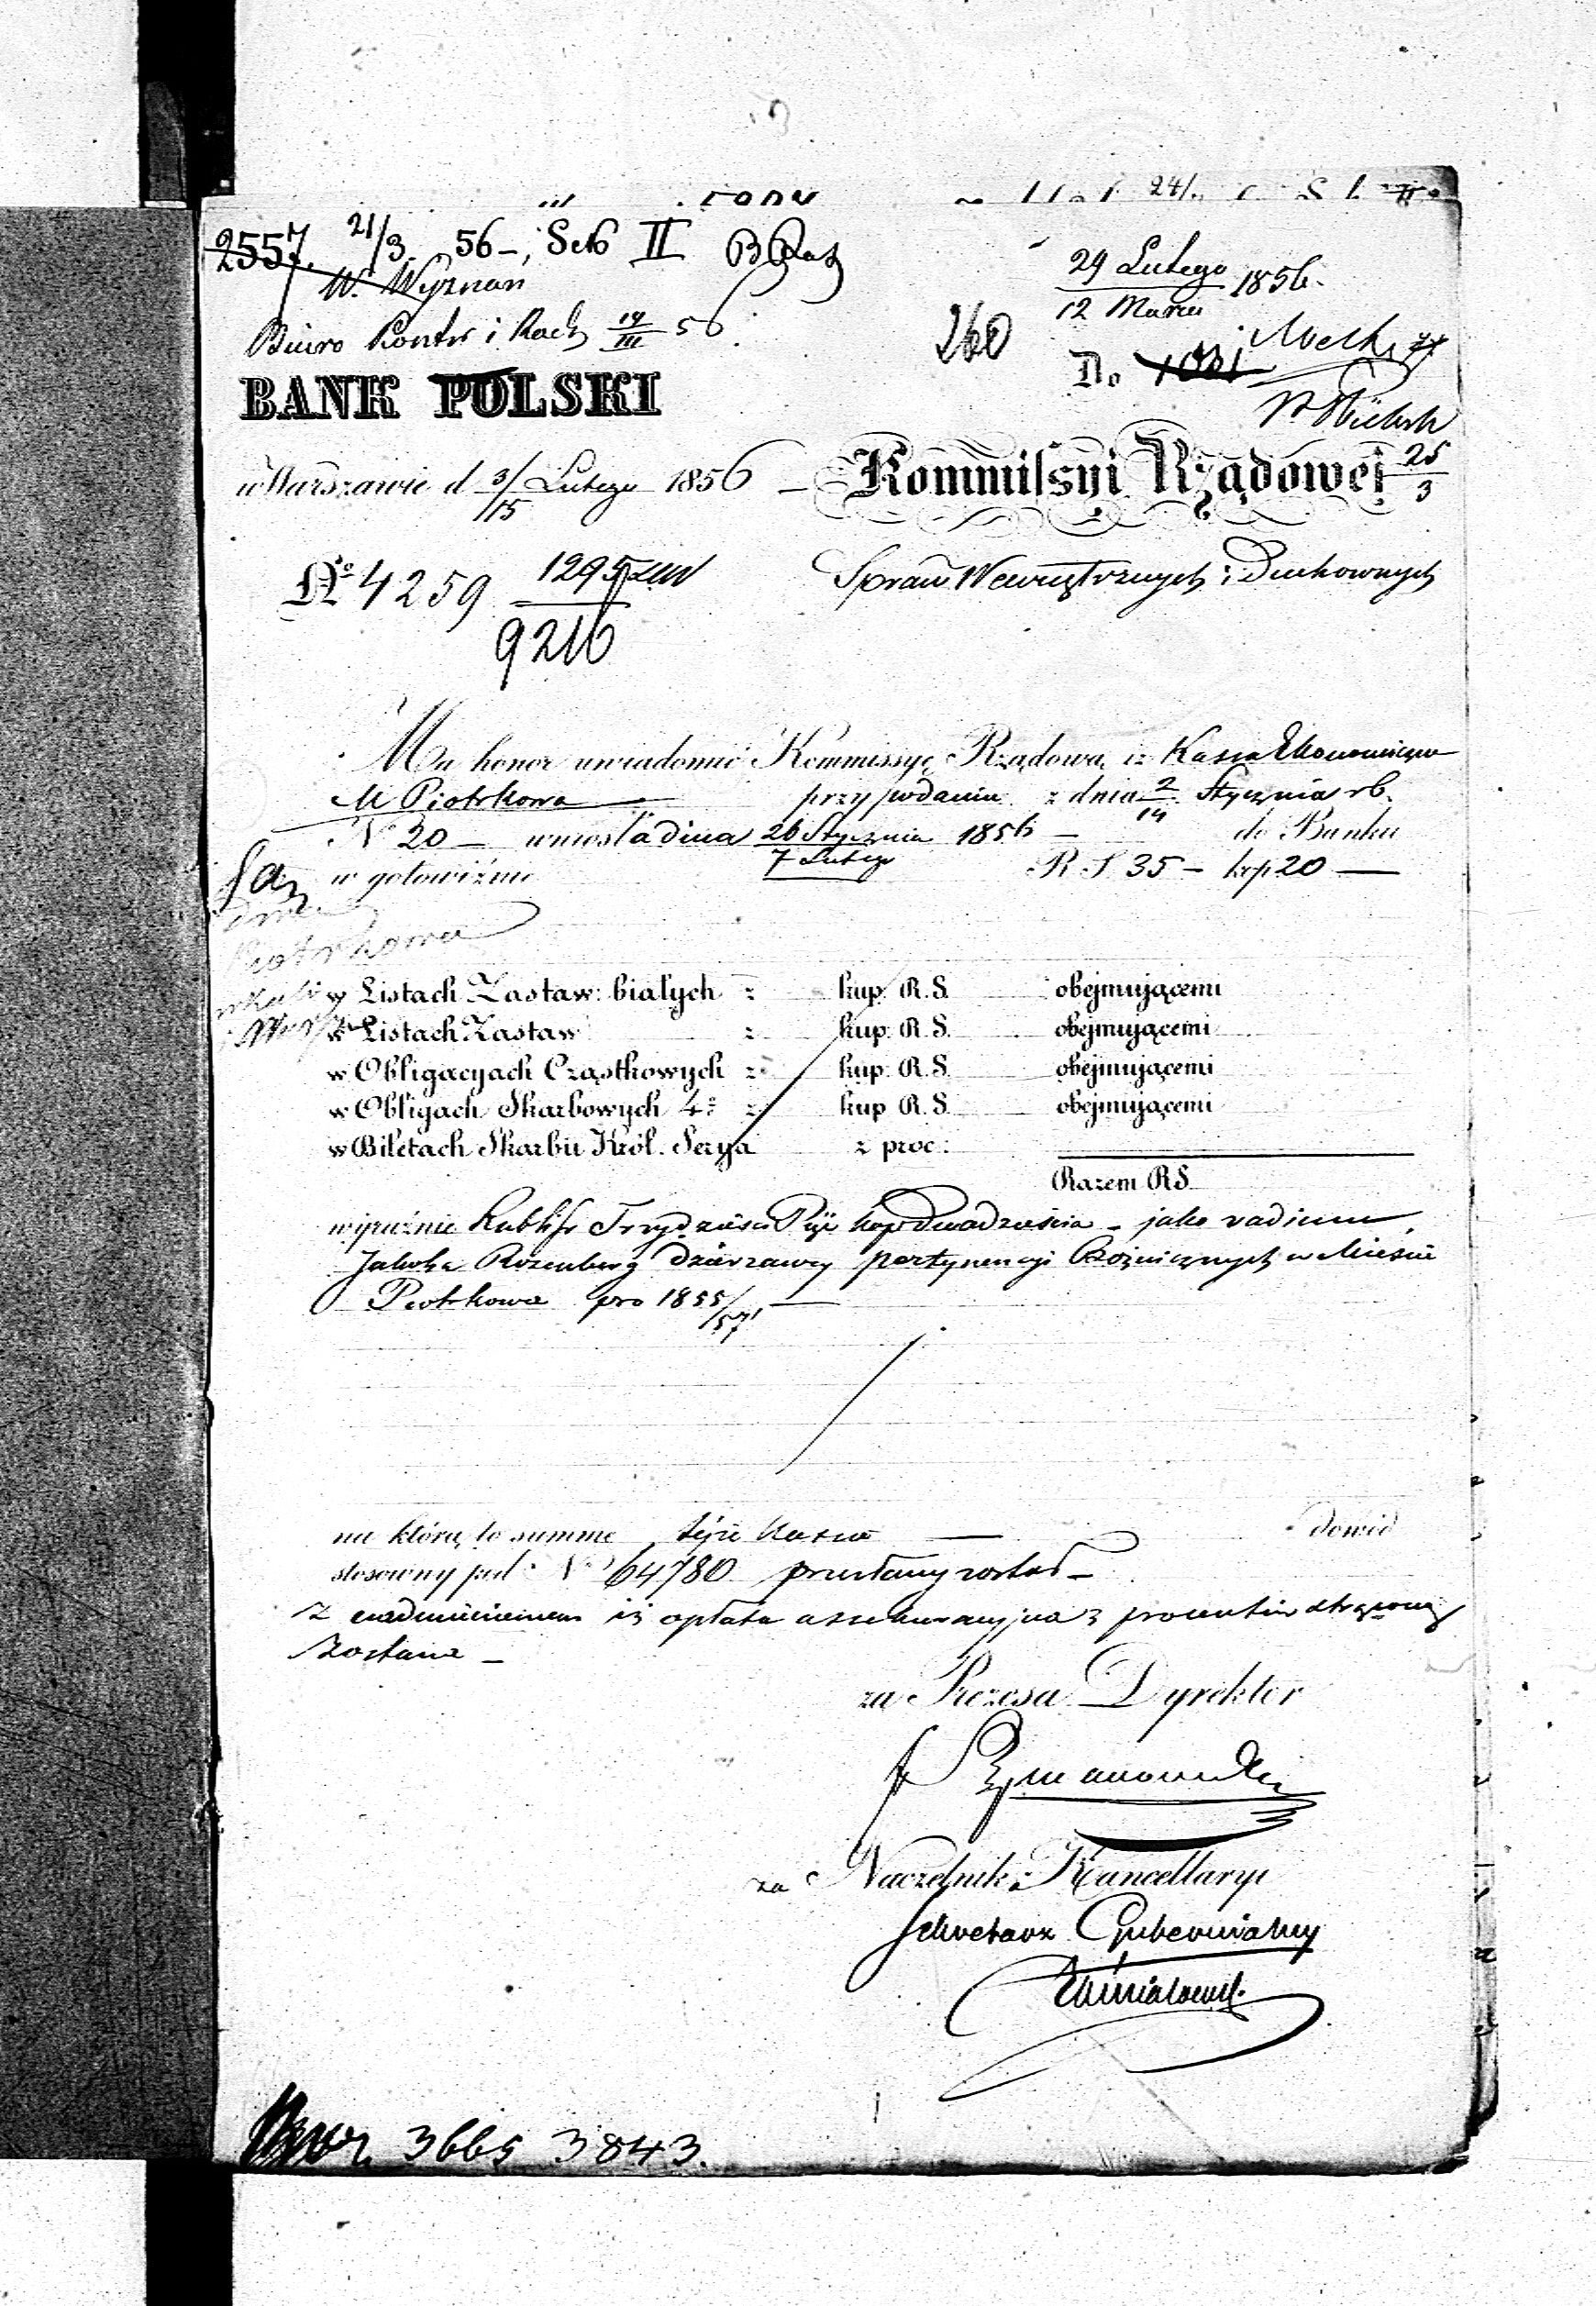 2557. 21/3 56 –, Sek II
W. Wyznań
Biuro Kontr i Rach 19/III 56
29 Lutego
12 Marca 1856.
260
BANK POLSKI
Do
w Warszawie d 3/15 Lutego 1856 –
Kommissyi Rządowej
25/3
No 4259
1295
9216
Spraw Wewnętrznych i Duchownych
Ma honor uwiadomić Kommissyę Rządową iż Kassa Ekonomiczna
M Piotrkowa przy podaniu z dnia 2/14 Stycznia rb.
No 20 – wniosła dnia 26 Stycznia / 7 Lutego 1856 – do Banku
w gotowiźnie R. S. 35 – kop 20 —
Piotrkowa
w Listach Zastaw: białych z kup. R. S. obejmującemi
w Listach Zastaw z kup. R. S. obejmującemi
w Obligacyach Cząstkowych z kup. R. S. obejmującemi
w Obligach Skarbowych 4% z kup R. S. obejmującemi
w Biletach Skarbu Król. Serya z proc:
Razem RS.
wyraźnie Rubli sr Trzydzieści Pięć kop Dwadzieścia – jako vadium
Jakóba Rozenberg dzierżawcy pertynencyi Bożnicznych w Mieście
Piotrkowie pro 1855/57 —
na którą to summę tejże Kassie — dowód
stosowny pod No 64780 przesłany został –
Z nadmienieniem iż opłata assekuracyjna z procentów strąconą
zostanie –
za Prezesa Dyrektor
za Naczelnik Kancellaryi
Sekretarz Gubernialny
3665 3843.